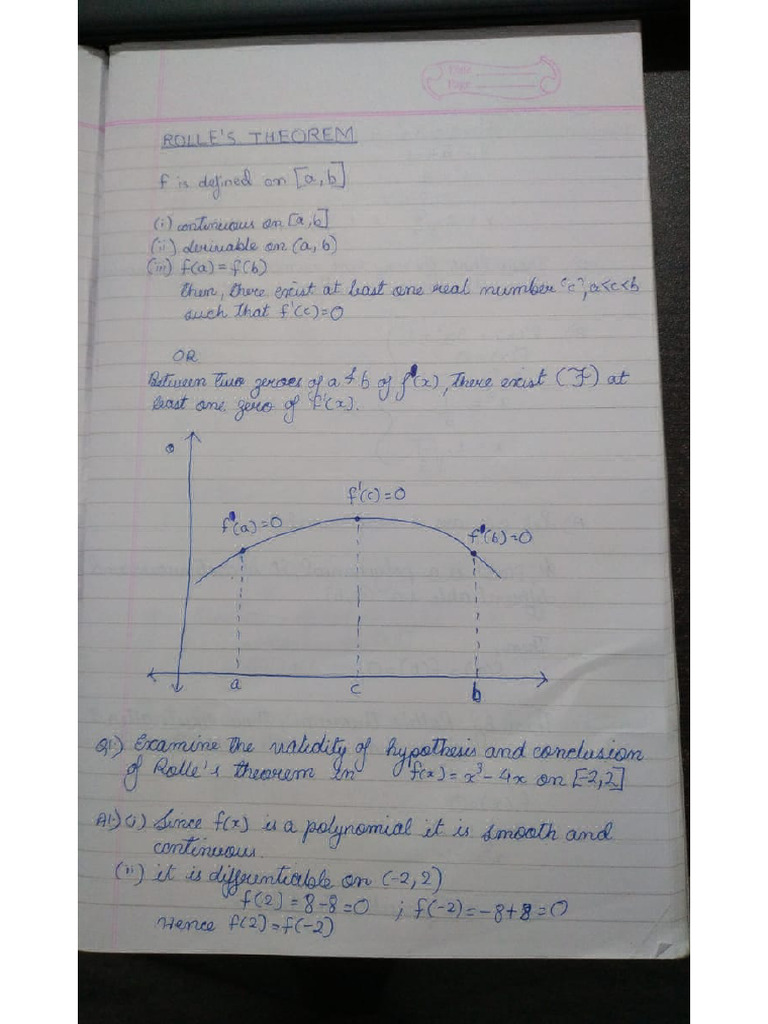 Date
Page
ROLLE'S THEOREM
f is defined on [a,b]
(i) continuous on [a,b]
(ii) derivable on (a,b)
(iii) f(a)=f(b)
then, there exist at least one real number 'c', a<c<b
such that f'(c)=0
OR
Between two zeroes of a & b of f(x), there exist (∃) at
least one zero of f'(x).
f'(c)=0
f(a)=0
f(b)=0
a c b
Q1.) Examine the validity of hypothesis and conclusion
of Rolle's theorem in f(x)=x³-4x on [-2,2]
A1.) (i) Since f(x) is a polynomial it is smooth and
continuous.
(ii) it is differentiable on (-2,2)
f(2)=8-8=0 ; f(-2)=-8+8=0
Hence f(2)=f(-2)